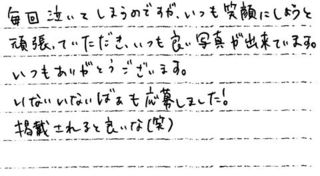 毎回泣いてしまうのですが、いつも笑顔にしようと
頑張っていただき、いつも良い写真が出来ています。
いつもありがとうございます。
いないいないばぁも応募しました!
掲載されると良いな(笑)